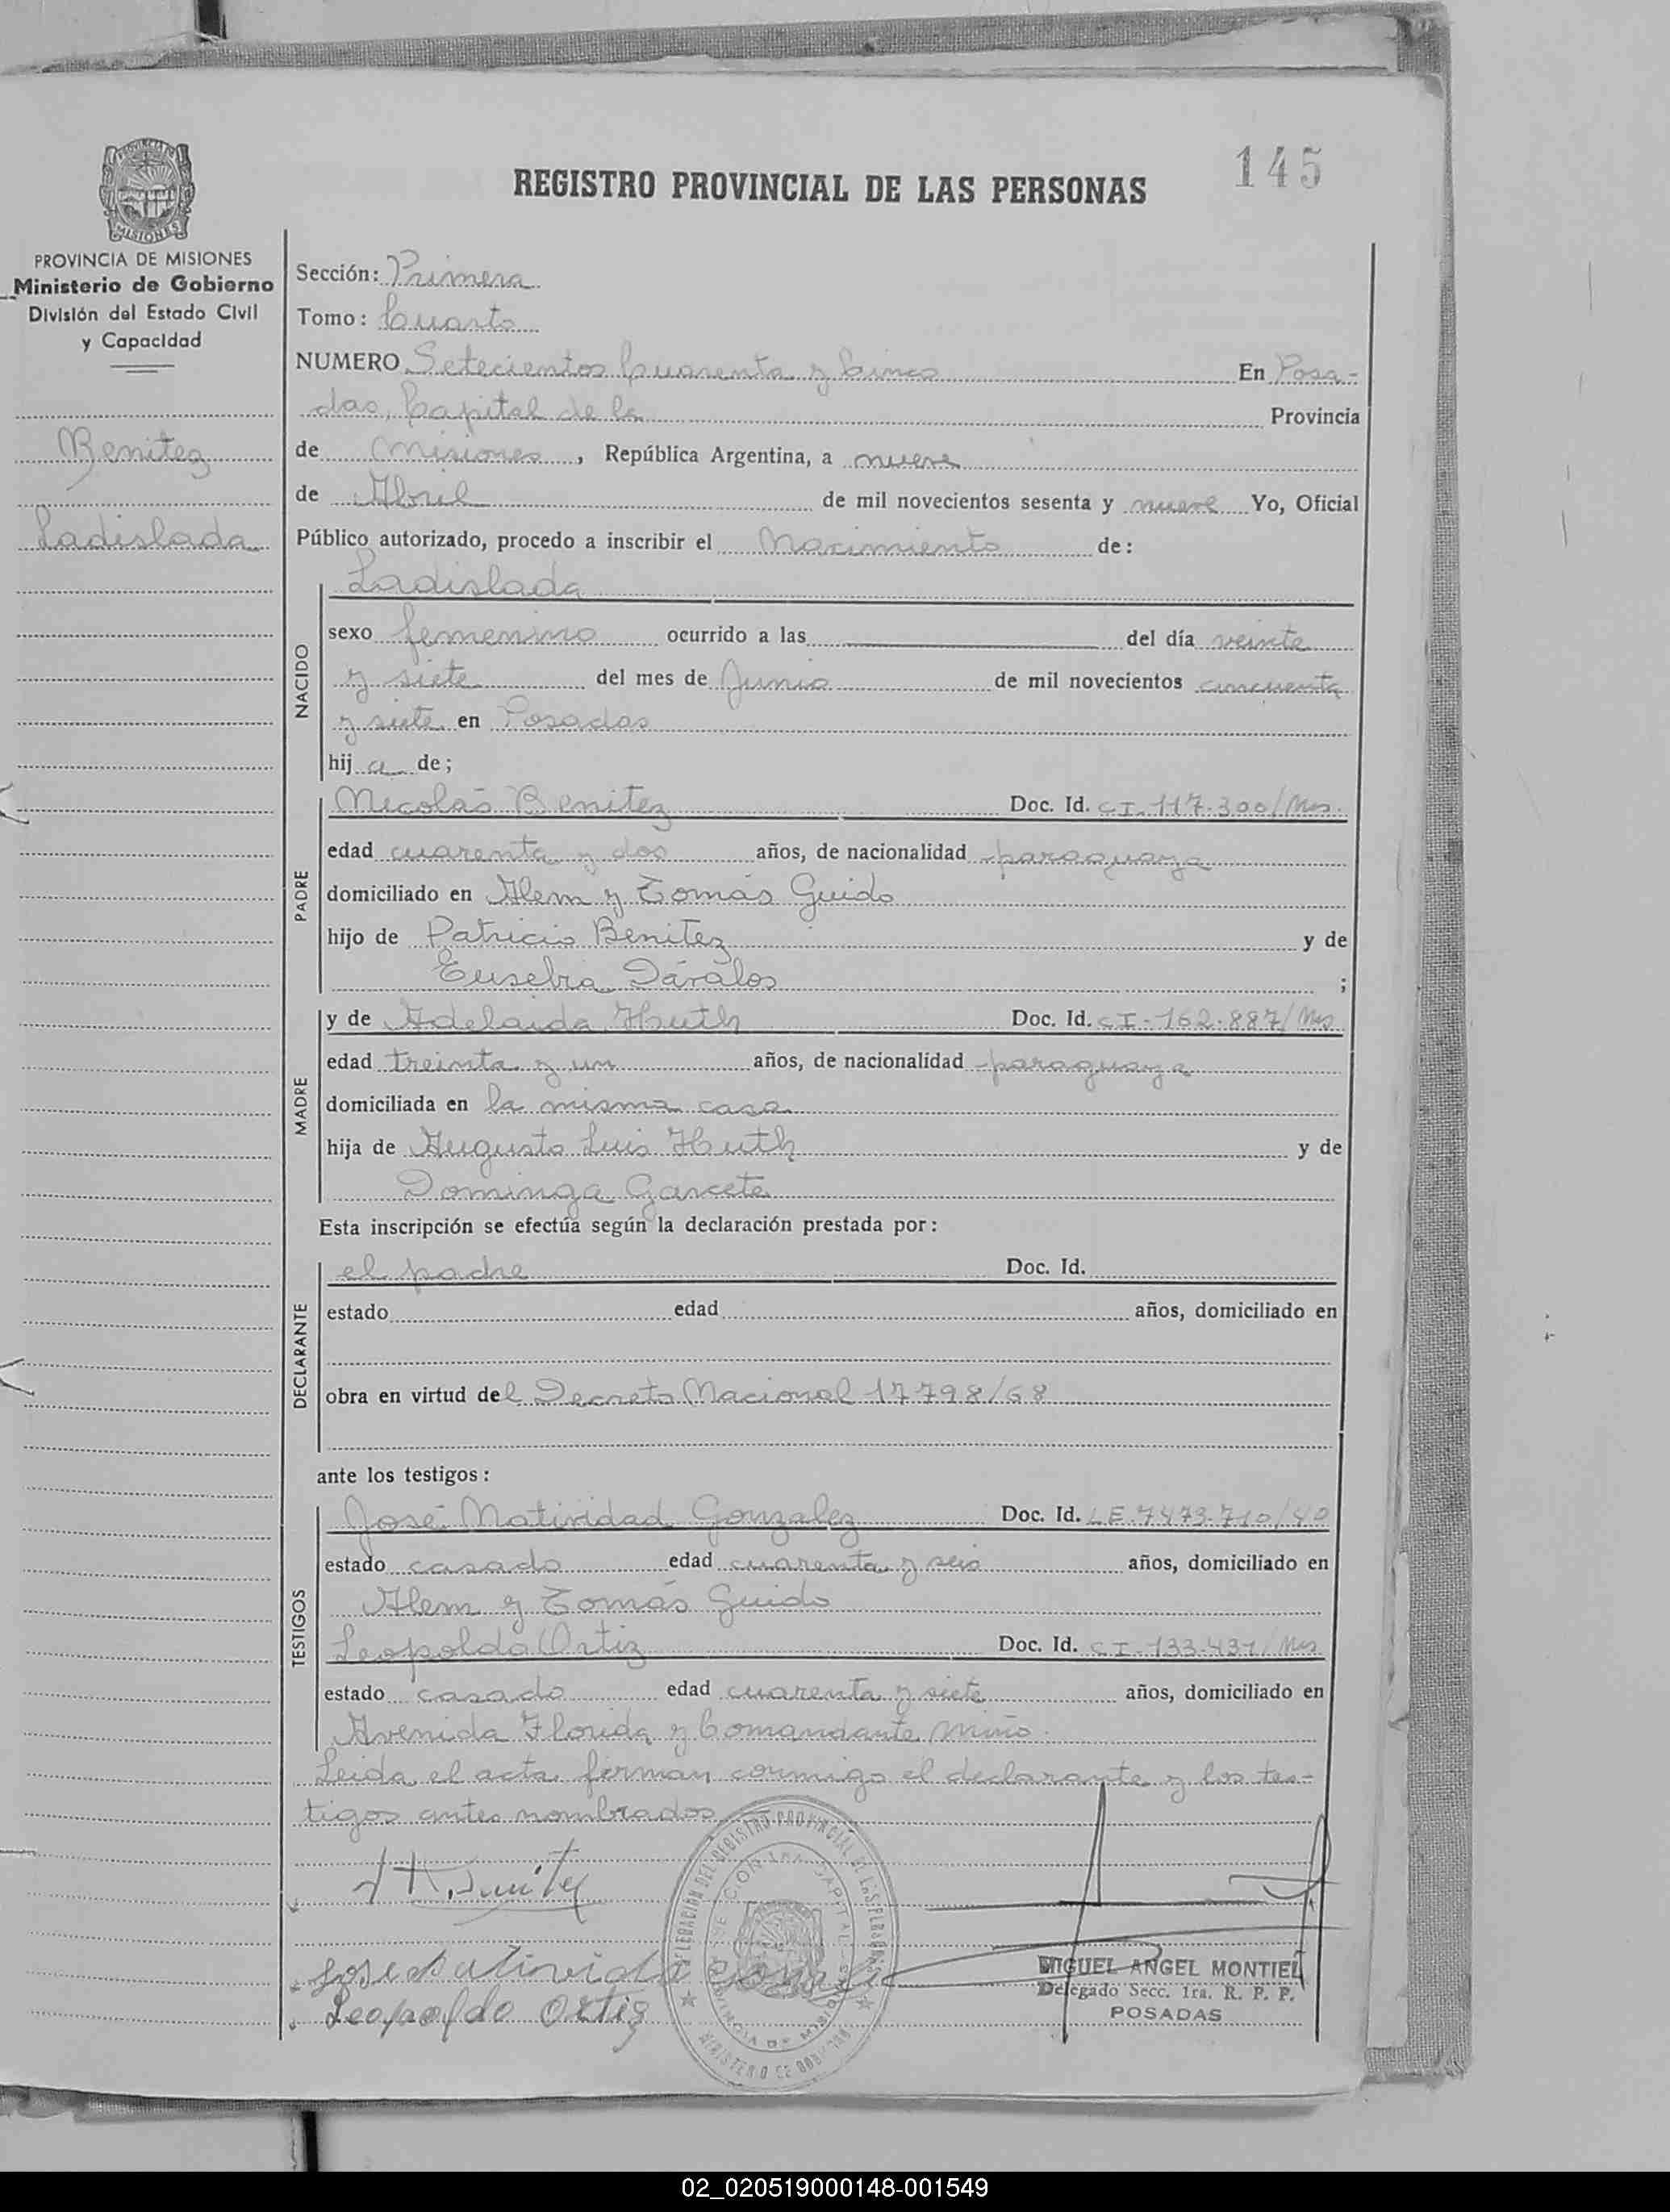 145
REGISTRO PROVINCIAL DE LAS PERSONAS
MISIONES
PROVINCIA DE MISIONES
Ministerio de Gobierno
División del Estado Civil
y Capacidad
Benitez
Ladislada
Sección: Primera
Tomo: Cuarto
NUMERO Setecientos Cuarenta y Cinco En Posa-
das, Capital de la Provincia
de Misiones, República Argentina, a nueve
de Abril de mil novecientos sesenta y nueve Yo, Oficial
Público autorizado, procedo a inscribir el Nacimiento de:
NACIDO
Ladislada
sexo femenino ocurrido a las del día veinte
y siete del mes de Junio de mil novecientos cincuenta
y siete en Posadas
hija de;
PADRE
Nicolás Benitez Doc. Id. CI-117.300/Mns.
edad cuarenta y dos años, de nacionalidad paraguaya
domiciliado en Alem y Tomás Guido
hijo de Patricio Benitez y de
Eusebia Dávalos ;
MADRE
y de Adelaida Huth Doc. Id. CI-162.887/Mns
edad treinta y un años, de nacionalidad paraguaya
domiciliada en la misma casa
hija de Augusto Luis Huth y de
Dominga Garcete
Esta inscripción se efectúa según la declaración prestada por:
DECLARANTE
el padre Doc. Id.
estado edad años, domiciliado en
obra en virtud del Decreto Nacional 17798/68
ante los testigos:
TESTIGOS
José Natividad Gonzalez Doc. Id. LE.7473.710/40
estado casado edad cuarenta y seis años, domiciliado en
Alem y Tomás Guido
Leopoldo Ortiz Doc. Id. CI-133.431/Mns
estado casado edad cuarenta y siete años, domiciliado en
Avenida Florida y Comandante Miño.
Leida el acta firman conmigo el declarante y los tes-
tigos antes nombrados
DELEGACIÓN DEL REGISTRO PROVINCIAL DE LAS PERSONAS
SECCION 1RA CAPITAL
PROVINCIA DE MISIONES
MINISTERIO DE GOBIERNO
Jose Natividad Gonzalez
Leopoldo Ortiz
MIGUEL ANGEL MONTIEL
Delegado Secc. 1ra. R. P. P.
POSADAS
02_020519000148-001549